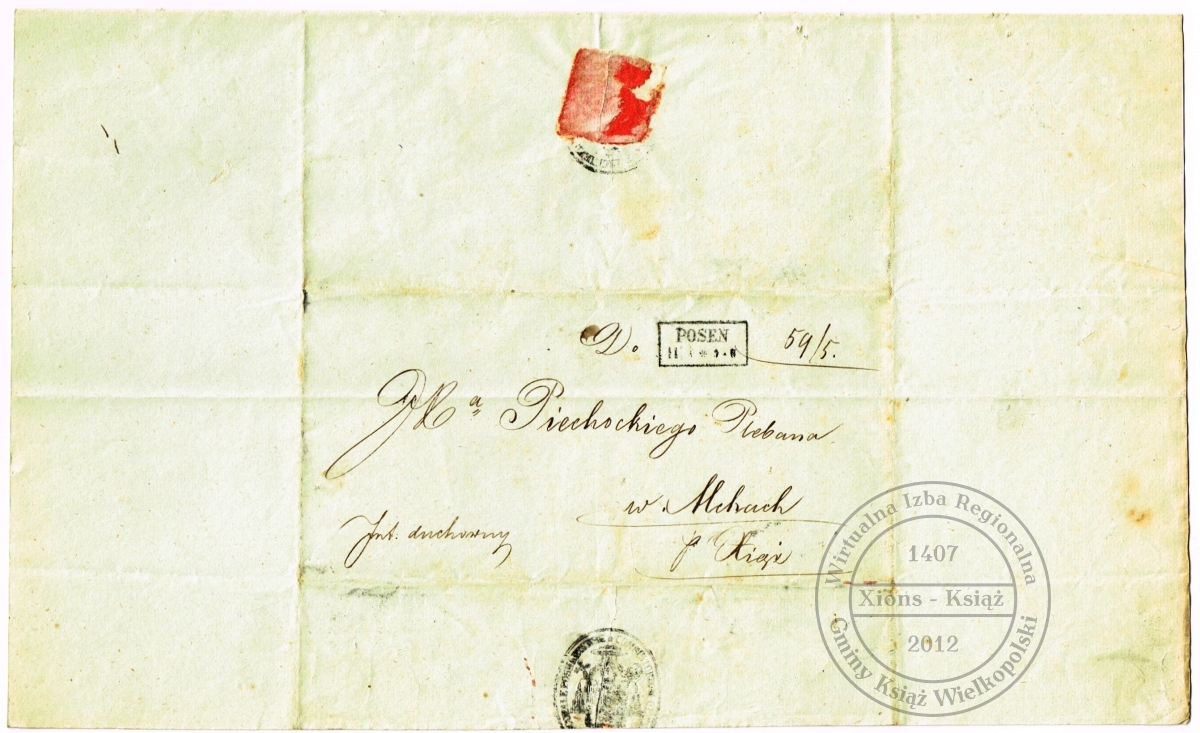 D. POSEN 59/5.
Piechockiego Plebana
w Mchach
p Xiąż
Int. duchowny
Wirtualna Izba Regionalna
1407
Xions - Książ
2012
Gminy Książ Wielkopolski